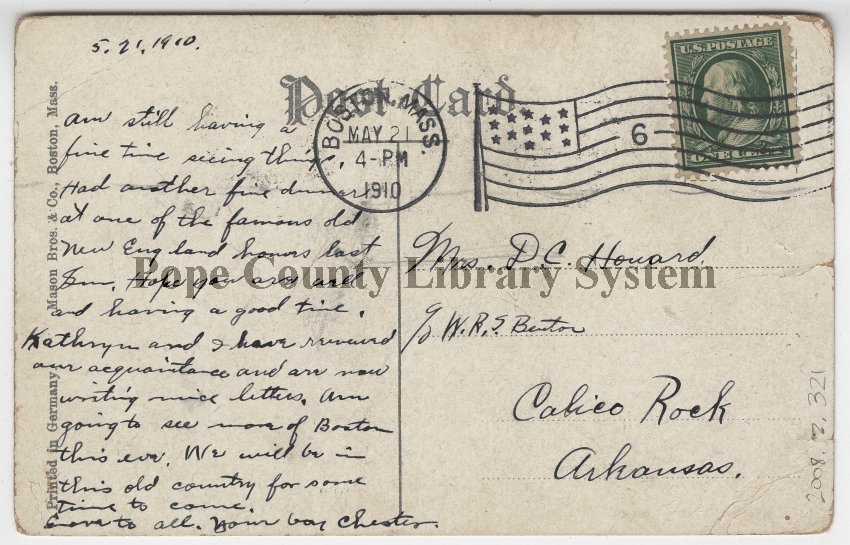 5.21.1910.
Post Card
U.S. POSTAGE
ONE CENT
BOSTON, MASS.
MAY 21
4-PM
1910
6
am still having a
fine time seeing things.
Had another fine dinner
at one of the famous old
New England last
Hope you are
and having a good time.
Kathryn and I have renewed
our acquaintance and are now
writing nice letters. Am
going to see more of Boston
this eve. We will be in
this old country for some
time to come.
Love to all. Your boy Chester.
Mrs. D.C. Howard.
c/o W.R.S Benton
Calico Rock
Arkansas.
Pope County Library System
Printed in Germany
Mason Bros. & Co., Boston, Mass.
2008.2.321